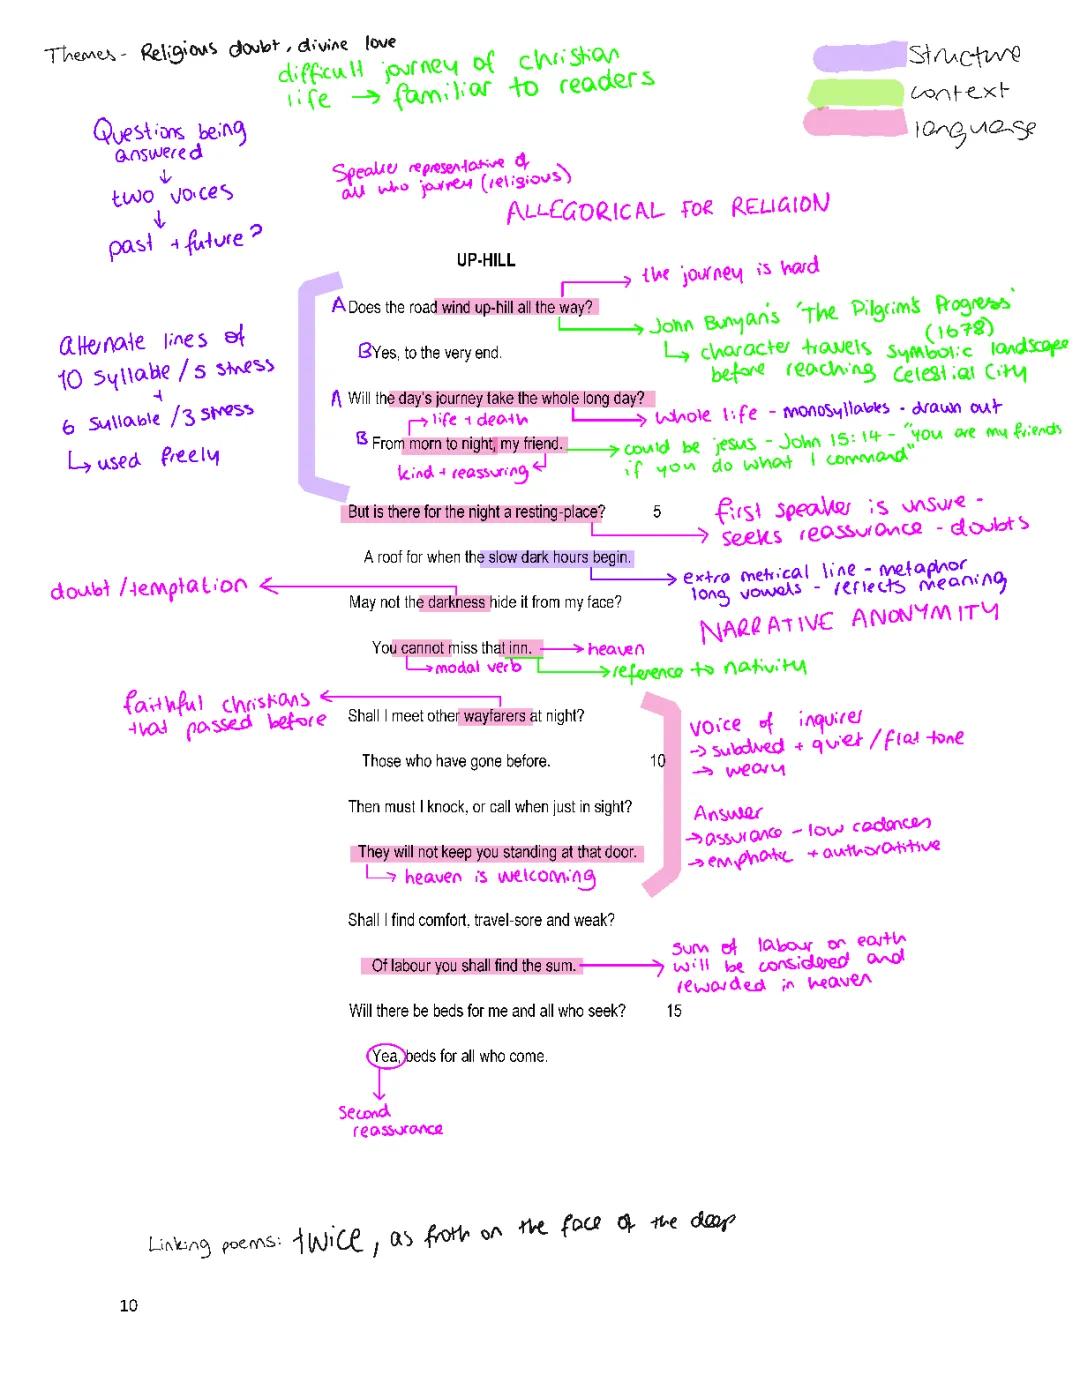 Themes - Religious doubt, divine love
difficult journey of christian
life → familiar to readers
Structure
context
language
Questions being
answered
↓
two voices
↓
past + future?
Speaker representative of
all who journey (religious)
ALLEGORICAL FOR RELIGION
UP-HILL
the journey is hard
A Does the road wind up-hill all the way?
John Bunyan's 'The Pilgrim's Progress'
(1678)
↳ character travels symbolic landscape
before reaching Celestial City
B Yes, to the very end.
alternate lines of
10 syllable / 5 stress
+
6 syllable / 3 stress
↳ used freely
A Will the day's journey take the whole long day?
life + death
whole life - monosyllables - drawn out
B From morn to night, my friend.
could be jesus - John 15:14 - "you are my friends
if you do what I command"
kind + reassuring
But is there for the night a resting-place? 5
first speaker is unsure -
seeks reassurance - doubts
A roof for when the slow dark hours begin.
extra metrical line - metaphor
long vowels - reflects meaning
doubt / temptation
May not the darkness hide it from my face?
NARRATIVE ANONYMITY
You cannot miss that inn.
heaven
modal verb
reference to nativity
faithful christians
that passed before
Shall I meet other wayfarers at night?
voice of inquirer
→ subdued + quiet / flat tone
→ weary
Those who have gone before. 10
Then must I knock, or call when just in sight?
Answer
→ assurance - low cadences
→ emphatic + authoratitive
They will not keep you standing at that door.
heaven is welcoming
Shall I find comfort, travel-sore and weak?
Of labour you shall find the sum.
sum of labour on earth
will be considered and
rewarded in heaven
Will there be beds for me and all who seek? 15
Yea, beds for all who come.
second
reassurance
Linking poems: twice, as froth on the face of the deep
10